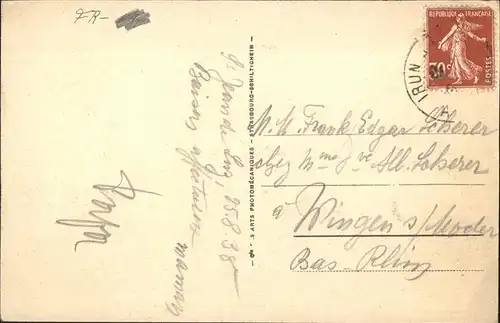 FR-
St Jean de Luz, 25 8 38
Baisers affectueux
maman
ARTS PHOTOMÉCANIQUES - STRASBOURG-SCHILTIGHEIM
REPUBLIQUE FRANÇAISE
30c
POSTES
IRUN
M.M. Frank Edgar Scherer
chez Mme Vve Alb. Scherer
à Wingen s/Moder
Bas-Rhin